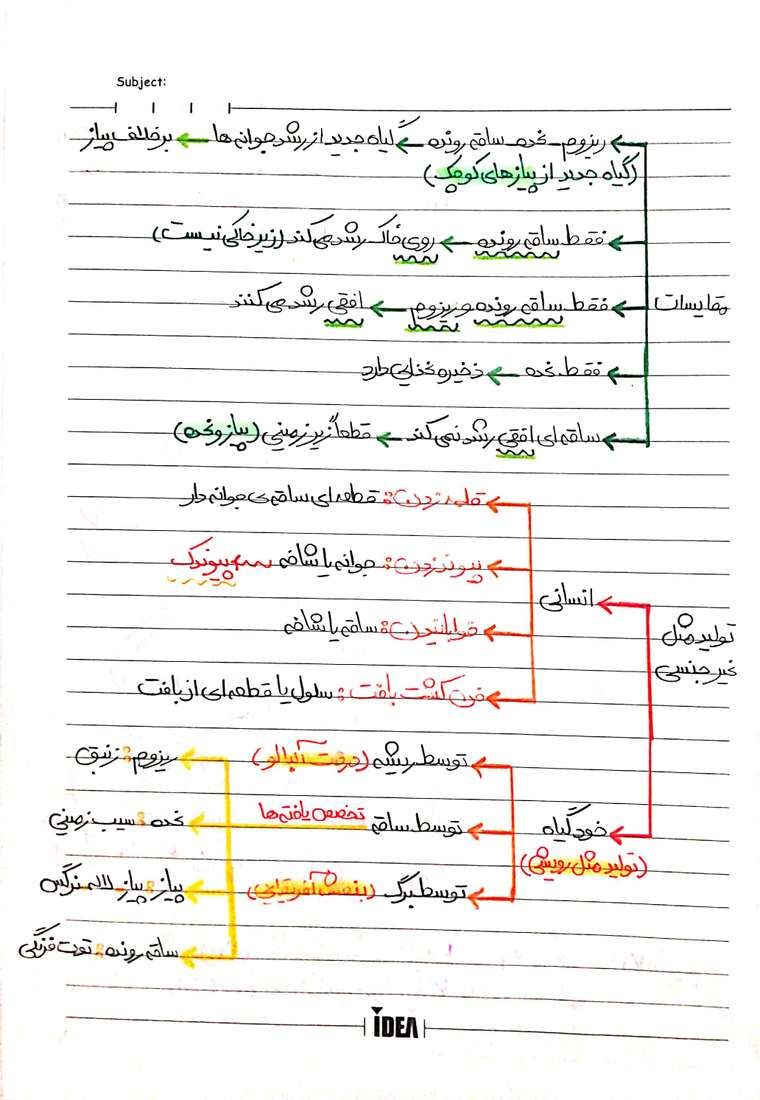 Subject:
ریزوم - غده - ساقه رونده ← گیاه جدید از رشد جوانه ها ← برخلاف پیاز
(گیاه جدید از پیازهای کوچک)
فقط ساقه رونده ← روی خاک رشد می کند (زیرخاکی نیست)
مقایسات
فقط ساقه رونده و ریزوم ← افقی رشد می کنند
فقط غده ← ذخیره غذایی دارد
ساقه ای افقی رشد نمی کند ← قطعاً زیر زمینی (پیاز و غده)
قلمه زدن: قطعه ای ساقه ی جوانه دار
پیوند زدن: جوانه یا شاخه ← پیوندک
انسانی
خوابانیدن: ساقه یا شاخه
تولید مثل
غیر جنسی
فن کشت بافت: سلول یا قطعه ای از بافت
توسط ریشه (درخت آلبالو)
ریزوم: زنبق
خود گیاه
(تولید مثل رویشی)
توسط ساقه تخصص یافته ها
غده: سیب زمینی
توسط برگ (بنفشه آفریقایی)
پیاز: پیاز - لاله - نرگس
ساقه رونده: توت فرنگی
IDEA